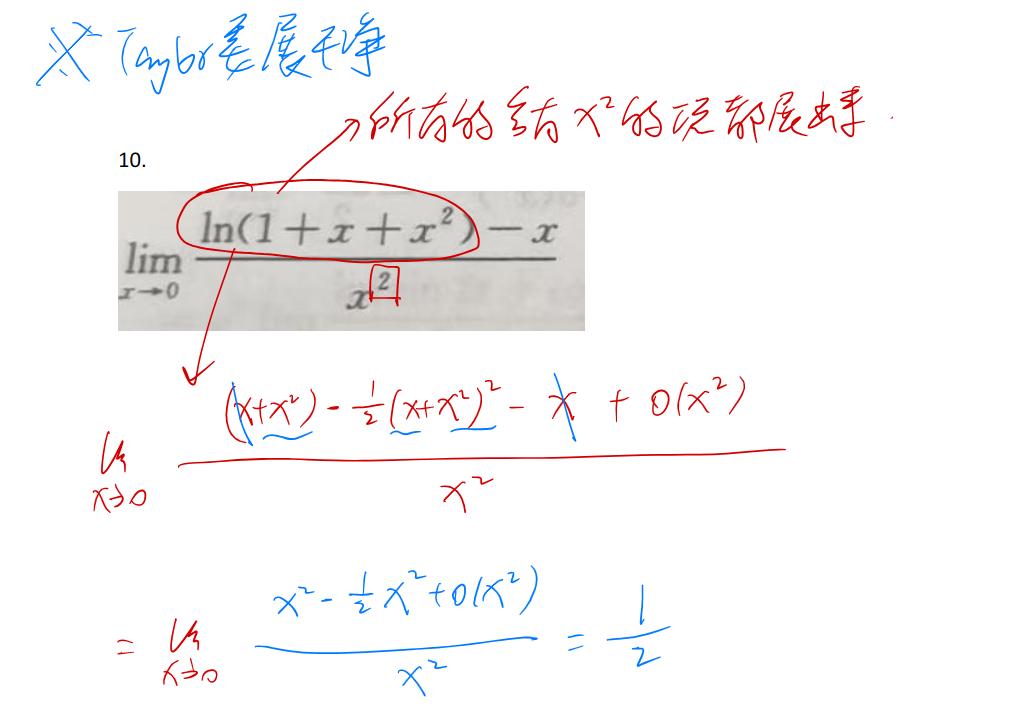 ※ Taylor要展干净
所有的含有 x² 的项都展出来.
10.
lim x→0 (ln(1+x+x²)-x)/x²
lim x→0 ((x+x²) - 1/2 (x+x²)² - x + o(x²))/x²
= lim x→0 (x² - 1/2 x² + o(x²))/x² = 1/2